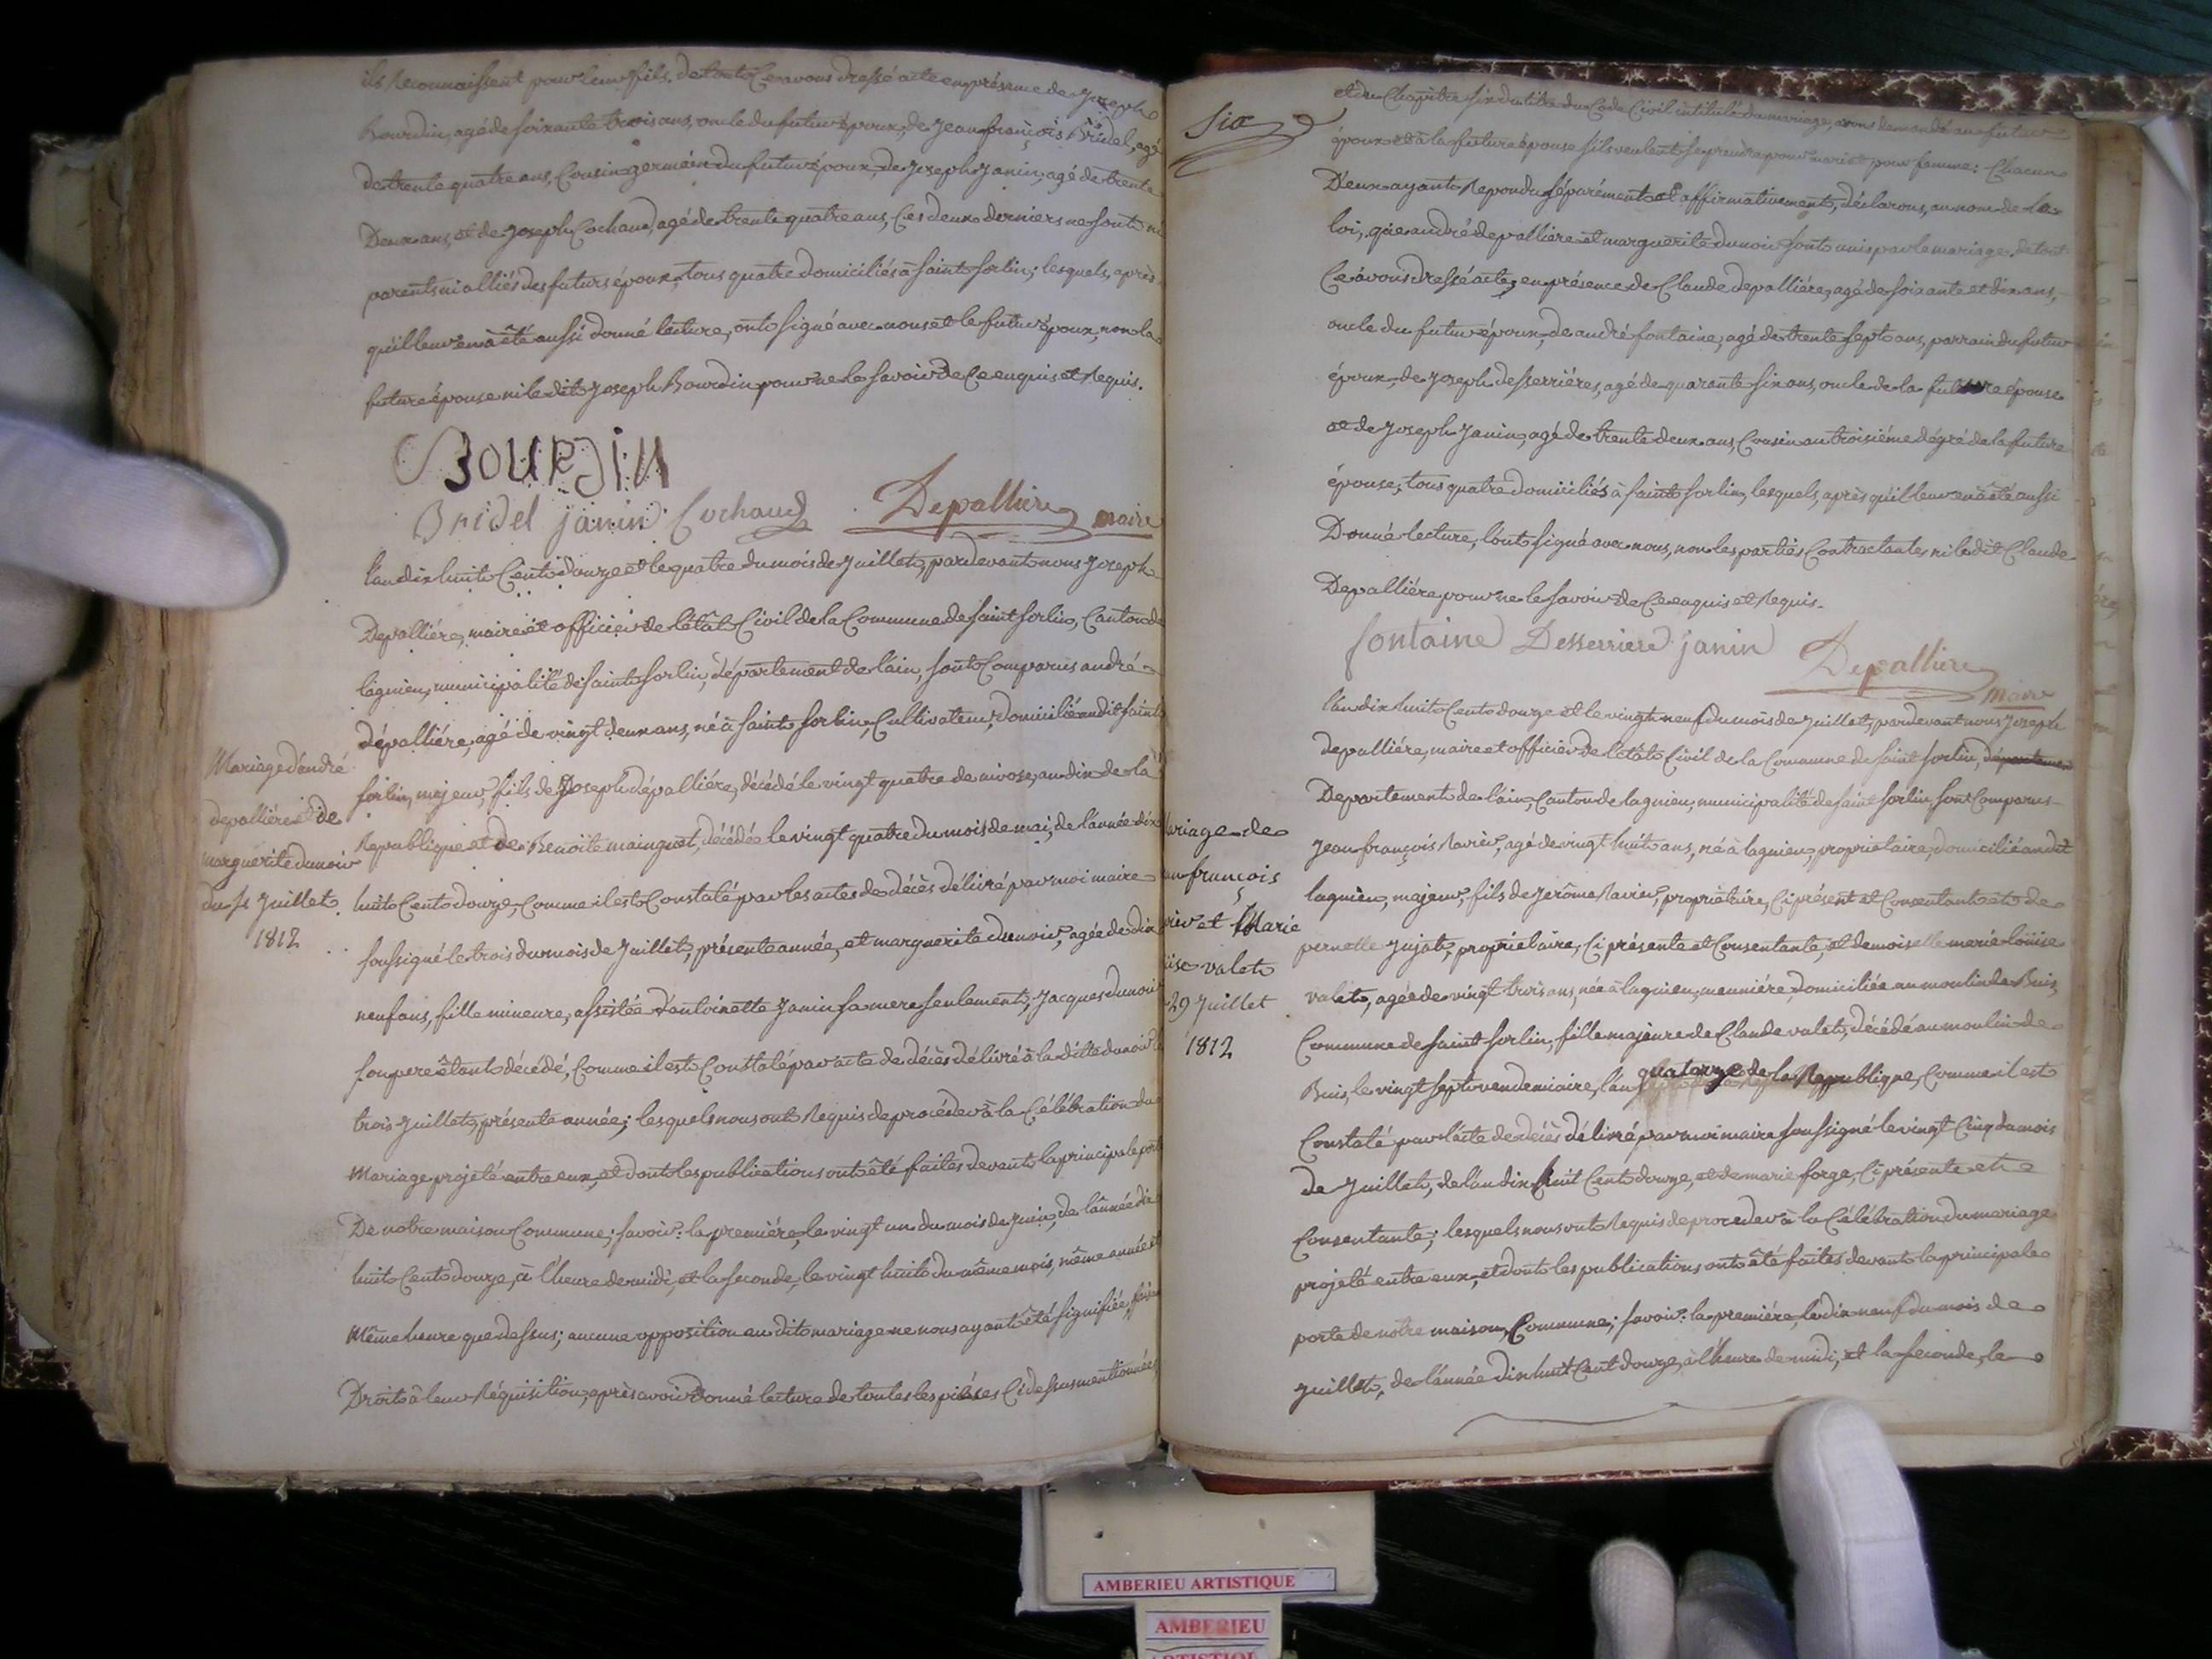 ils reconnaissent pour leur fils. de tout ce avons dressé acte en présence de Joseph
Bourdin, agé de soixante trois ans, oncle du futur époux, de Jean françois Bridel, agé
de trente quatre ans, Cousin germain du futur époux, de Joseph Janin, agé de trente
Deux ans, et de Joseph Cochaud, agé de trente quatre ans, Ces deux derniers ne sont ni
parents ni alliés des futurs époux, tous quatre domiciliés à Saint Sorlin; lesquels, après
qu'il leur en à été aussi donné lecture, ont signé avec nous et le futur époux, non la
future épouse ni le dit Joseph Bourdin pour ne le savoir de Ce enquis et requis.
BOURDIN
Bridel janin Cochaud Depalliere maire
L'an dix huit Cent douze et le quatre du mois de Juillet, pardevant nous Joseph
Depalliére, maire et officier de l'état Civil de la Commune de Saint Sorlin, Canton de
lagnieu, municipalité de Saint Sorlin, département de l'ain, sont Comparus andré
dépalliére, agé de vingt deux ans, né à Saint Sorlin, Cultivateur, domicilié au dit Saint
Mariage d'andré
depalliére et de
marguerite dunoir
du 4 Juillet
1812
Sorlin, majeur, fils de Joseph dépalliére, décédé le vingt quatre de nivose, an dix de la
Republique et de Benoite mainguet, décédée le vingt quatre du mois de mai, de l'année dix
huit Cent douze, Comme il est Constaté par les actes de décès délivré par moi maire
soussigné le trois du mois de Juillet, présente année, et marguerite dunoir, agée de dix
neuf ans, fille mineure, assistée d'antoinette Janin sa mere seulement; Jacques dunoir
son pere étant décédé, Comme il est Constaté par acte de décès délivré à la dite dunoir le
trois Juillet, présente année; lesquels nous ont requis de procéder à la Célébration du
Mariage projeté entre eux, et dont les publications ont été faites devant la principale porte
De notre maison Commune; savoir: la premiére, le vingt un du mois de Juin, de l'année dix
huit Cent douze, à l'heure de midi, et la seconde, le vingt huit du même mois, même année et
Même heure que dessus; aucune opposition au dit mariage ne nous ayant été signifiée, faisant
Droit à leur réquisition, après avoir donné lecture de toutes les piéces Ci dessus mentionnées,
Six
et du Chapitre six du titre du Code Civil intitulé du mariage, avons demandé au futur
époux et à la future épouse s'ils veulent se prendre pour mari et pour femme: Chacun
D'eux ayant repondu séparément et affirmativement, déclarons, au nom de la
loi, que andré depalliére et marguerite dunoir sont unis par le mariage. de tout
Ce avons dressé acte, en présence de Claude depalliére, agé de soixante et dix ans,
oncle du futur époux, de andré fontaine, agé de trente sept ans, parrain du futur
époux, de Joseph desserriéres, agé de quarante six ans, oncle de la future épouse
et de Joseph Janin, agé de trente deux ans, Cousin au troisiéme dégré de la future
épouse; tous quatre domiciliés à Saint Sorlin, lesquels, après qu'il leur en à été aussi
Donné lecture, l'ont signé avec nous, non les parties Contractantes ni le dit Claude
Depalliére pour ne le savoir de Ce enquis et requis.
fontaine Desserriere janin Depalliere
maire
L'an dix huit Cent douze et le vingt neuf du mois de Juillet, pardevant nous Joseph
depalliére, maire et officier de l'état Civil de la Commune de Saint Sorlin, département
Departement de l'ain, Canton de lagnieu, municipalité de Saint Sorlin, sont Comparus
ariage de
an françois
vier et Marie
ise valet
29 Juillet
1812
Jean françois ravier, agé de vingt huit ans, né à lagnieu, proprietaire, domicilié au dit
lagnieu, majeur, fils de Jerôme ravier, propriétaire, Ci présent et Consentant et de
pernette Jujat, propriétaire, Ci présente et Consentante, et demoiselle marie loüise
valet, agée de vingt trois ans, née à lagnieu, meuniére, domiciliée au moulin de Buis,
Commune de Saint Sorlin, fille majeure de Claude valet, décédé au moulin de
Buis, le vingt sept vendemiaire, l'an quatorze de la Republique, Comme il est
Constaté par l'acte de décès délivré par moi maire soussigné le vingt Cinq du mois
de Juillet, de l'an dix huit Cent douze, et de marie forge, Ci présente et
Consentante; lesquels nous ont requis de proceder à la Célébration du mariage
projeté entre eux, et dont les publications ont été faites devant la principale
porte de notre maison Commune; savoir: la premiére, le dix neuf du mois de
Juillet, de l'année dix huit Cent douze, à l'heure de midi, et la seconde, le
AMBERIEU ARTISTIQUE
AMBERIEU
ARTISTIQUE